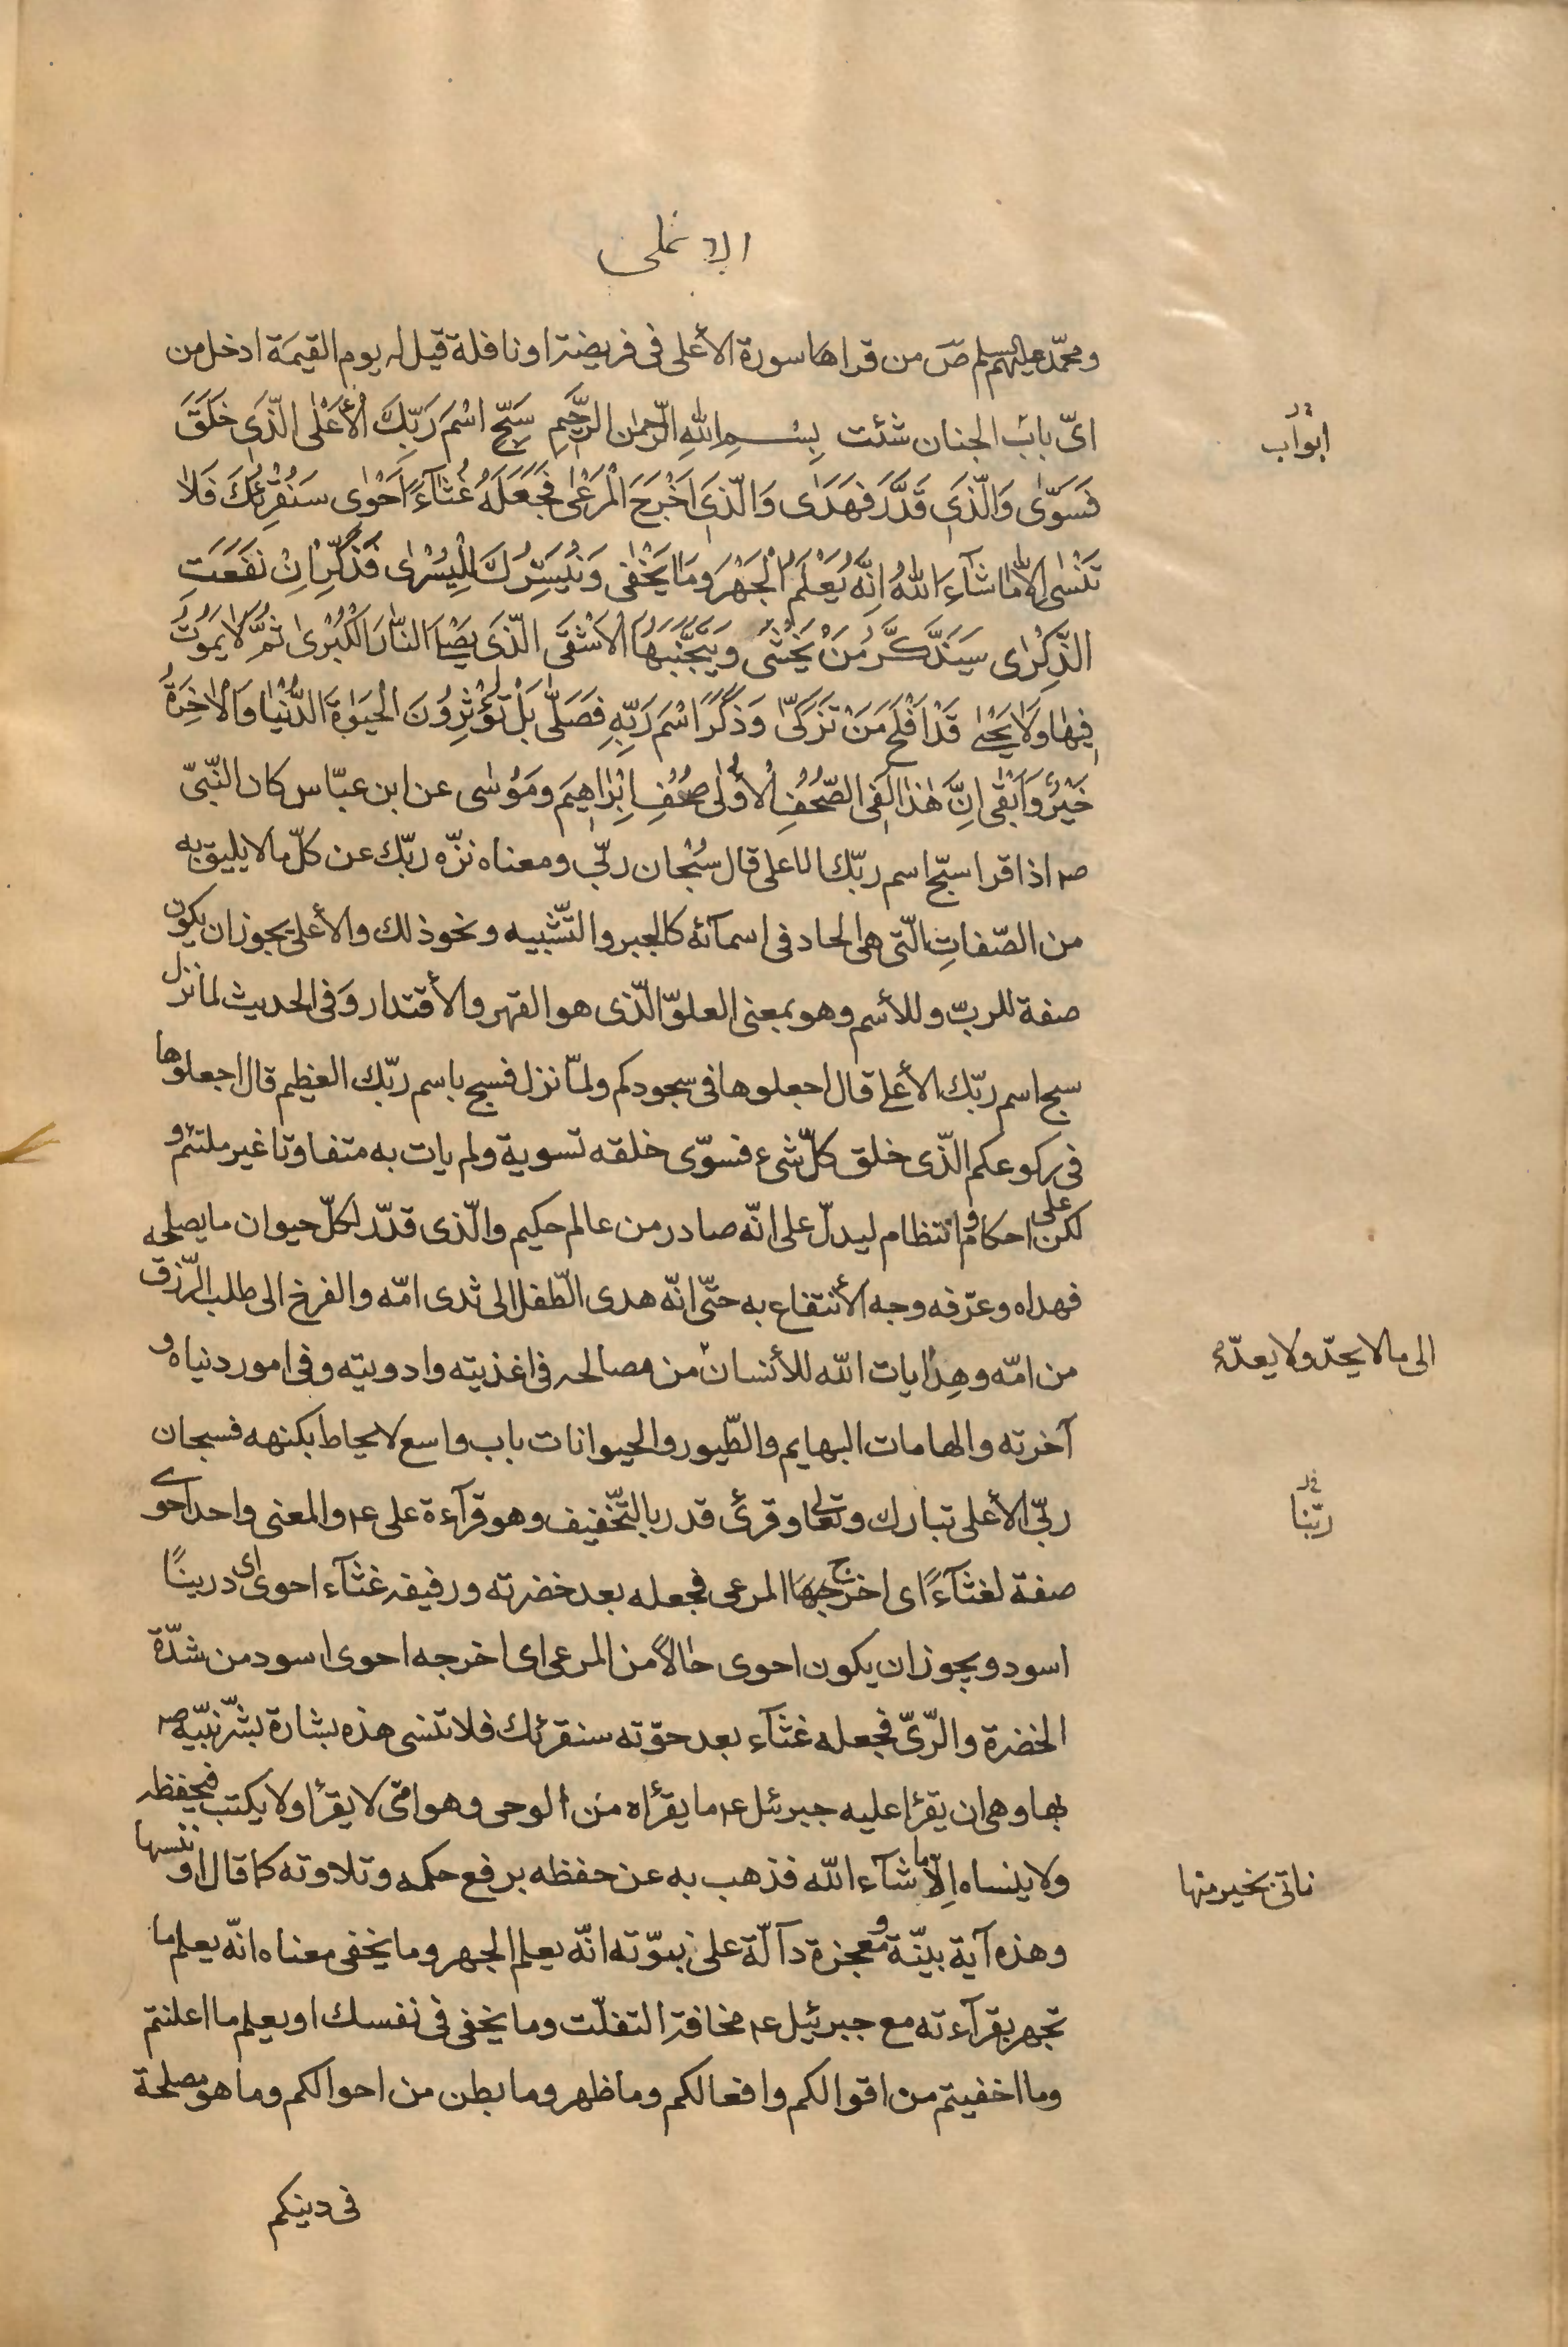 الاعلى
ومحمّد عليهم سلم صَ من قراها سورة الأعلى فى فريضة او نافلة قيل له يوم القيمَة ادخل من
اىّ بابَ الجنان شئت بِسْمِ اللهِ الرَّحْمٰنِ الرَّحٖيمِ سَبِّحِ اسْمَ رَبِّكَ الْأَعْلَى الَّذٖى خَلَقَ
ابواب
فَسَوّٰى وَالَّذٖى قَدَّرَ فَهَدٰى وَالَّذٖى اَخْرَجَ الْمَرْعٰى فَجَعَلَهُ غُثَآءً اَحْوٰى سَنُقْرِئُكَ فَلَا
تَنْسٰى اِلَّا مَا شَآءَ اللهُ اِنَّهُ يَعْلَمُ الْجَهْرَ وَمَا يَخْفٰى وَنُيَسِّرُكَ لِلْيُسْرٰى فَذَكِّرْ اِنْ نَفَعَتِ
الذِّكْرٰى سَيَذَّكَّرُ مَنْ يَخْشٰى وَيَتَجَنَّبُهَا الْاَشْقَى الَّذٖى يَصْلَى النَّارَ الْكُبْرٰى ثُمَّ لَا يَمُوتُ
فٖيهَا وَلَا يَحْيٰى قَدْ اَفْلَحَ مَنْ تَزَكّٰى وَذَكَرَ اسْمَ رَبِّهٖ فَصَلّٰى بَلْ تُؤْثِرُونَ الْحَيٰوةَ الدُّنْيَا وَالْاٰخِرَةُ
خَيْرٌ وَاَبْقٰى اِنَّ هٰذَا لَفِى الصُّحُفِ الْأُولٰى صُحُفِ اِبْرٰاهٖيمَ وَمُوسٰى عن ابن عبّاس كان النّبىّ
صـ اذا قرا سبّح اسم ربّك الاعلى قال سُبْحان ربّى ومعناه نزّه ربّك عن كلّ ما لا يليق به
من الصّفاتِ الّتى هى الحاد فى اسمآئه كالجبر والتّشبيه ونحو ذلك والأعلى يجوز ان يكون
صفة للربّ وللأسم وهو بمعنى العلوّ الّذى هو القهر والأقتدار وَفى الحديث لما نزل
سبح اسم ربّك الأعلى قال اجعلوها فى سجودكم ولمّا نزل فسبح باسم ربّك العظيم قال اجعلوها
فى ركوعكم الّذى خلق كلّ شىء فسوّى خلقه تسوية ولم يات به متفاوتا غير ملتئم و
لكن على احكام و انتظام ليدلّ على انّه صادر من عالم حكيم والّذى قدّر لكلّ حيوان ما يصلحه
فهداه وعرّفه وجه الأنتفاع به حتّى انّه هدى الطّفل الى ثدى امّه والفرخ الى طلب الرّزق
من امّه وهدايات اللّه للأنسان من مصالحه فى اغذيته وادويته وفى امور دنياه و
الى ما لا يحدّ ولا يعدّ
آخرته والهامات البهايم والطّيور والحيوانات باب واسع لا يحاط بكنهه فسبحان
ربّى الأعلى تبارك وتعالى وقرئ قدر بالتّخفيف وهو قرآءة على ع والمعنى واحد احوى
ربّنا
صفة لغثآءً اى اخرج المرعى فجعله بعد خضرته ورفيفه غثآء احوى اى درينًا
اسود ويجوز ان يكون احوى حالاً من المرعى اى اخرجه احوى اسود من شدّة
الخضرة والرّىّ فجعله غثآء بعد حوّته سنقرئك فلا تنسى هذه بشارة بشّر نبيّه صـ
بها وهى ان يقرأ عليه جبرئل ع ما يقرأه من الوحى وهو امّى لا يقرأ ولا يكتب فيحفظه
ولا ينساه اِلّا ما شآء اللّه فذهب به عن حفظه برفع حكمه وتلاوته كما قال او ننسها
ناتى بخير منها
وهذه آية بيّنة و معجزة دآلّة على نبوّته انّه يعلم الجهر وما يخفى معناه انّه يعلم ما
تجهر بقرآءته مع جبرئيل ع مخافة التفلّت وما يخفى فى نفسك او يعلم ما اعلنتم
وما اخفيتم من اقوالكم وافعالكم وما ظهر وما بطن من احوالكم وما هو مصلحة
فى دينكم